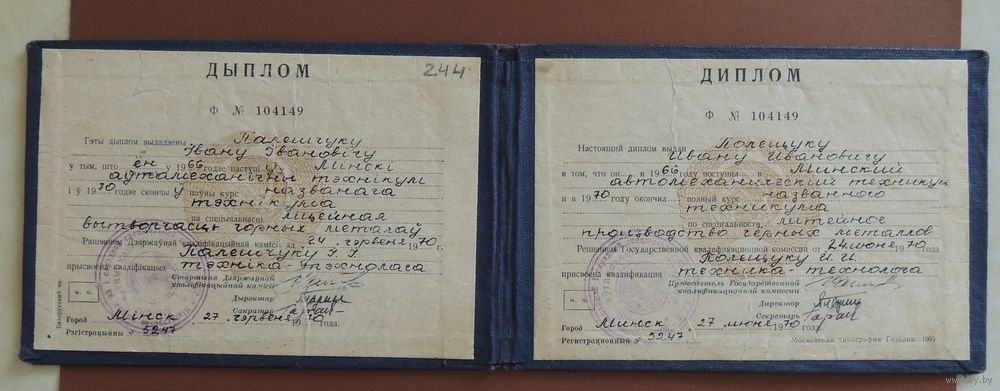 ДЫПЛОМ
244
Ф № 104149
Гэты дыплом выдадзены Палешчуку
Івану Іванавічу
у тым, што ён у 1966 годзе паступіў у Мінскі
аўтамеханічны тэхнікум
і ў 1970 годзе скончыў поўны курс названага
тэхнікума
па спецыяльнасці ліцейная
вытворчасць чорных металаў
Рашэннем Дзяржаўнай кваліфікацыйнай камісіі ад 24 чэрвеня 1970 г.
Палешчуку І. І.
прысвоена кваліфікацыя тэхніка-тэхнолага
Старшыня Дзяржаўнай
кваліфікацыйнай камісіі
Дырэктар
М. П.
Сакратар
Горад Мінск 27 чэрвеня 1970 года.
Рэгістрацыйны № 5247
Беларускай мн.
ДИПЛОМ
Ф № 104149
Настоящий диплом выдан Полещуку
Ивану Ивановичу
в том, что он в 1966 году поступил в Минский
автомеханический техникум
и в 1970 году окончил полный курс названного
техникума
по специальности литейное
производство черных металлов
Решением Государственной квалификационной комиссии от 24 июня 1970 года
Полещуку И. И.
присвоена квалификация техника-технолога
Председатель Государственной
квалификационной комиссии
Директор
М. П.
Секретарь
Город Минск 27 июня 1970 года.
Регистрационный № 5247
Московская типография Гознака. 1969.
www.ay.by